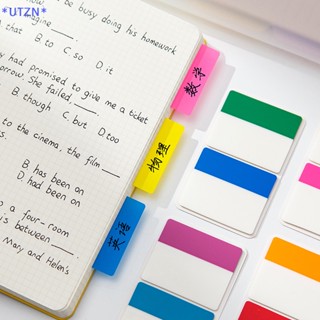 *UTZN*
be busy doing his homework
agine ____.
that B. to C. so D. it
y had promised to give me a ticket
orrow. She failed ____.
B. though C. but D. too
to the cinema, the film ____
B has been on
D. had been on
o a four-room
's between ____
Mary and Helen's
数学
物理
英语